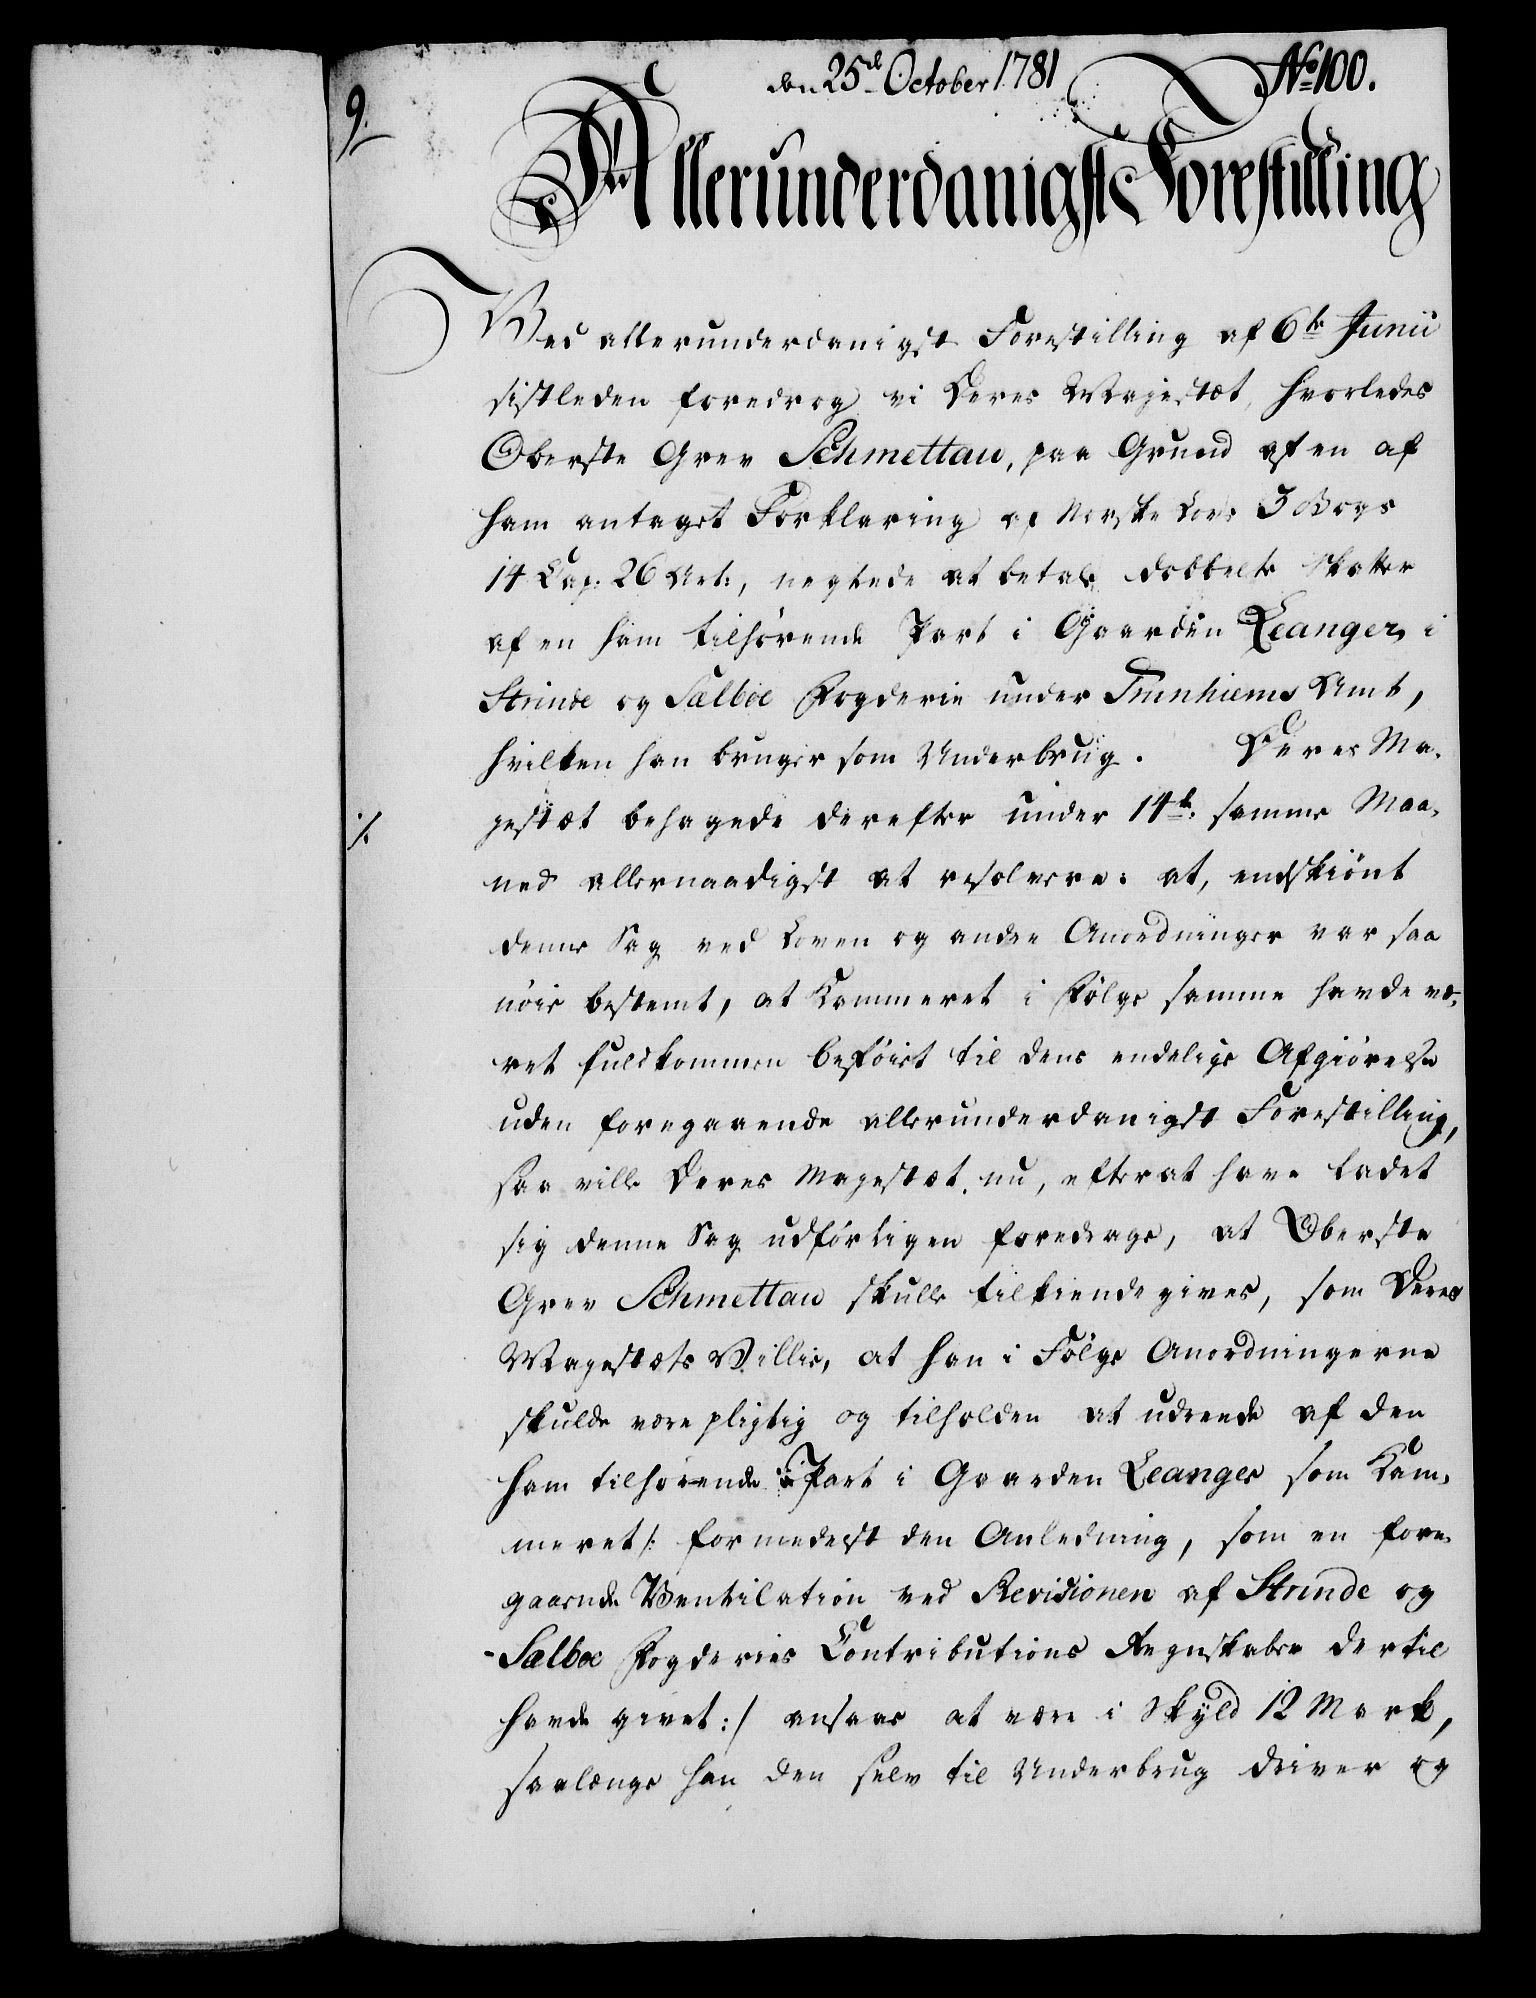 den 25d October 1781
No 100.
9.
Allerunderdanigste Forestilling
Ved allerunderdanigst Forestilling af 6te Junii
sistleden foredrog vi Deres Majestæt, hvorledes
Oberste Grev Schmettau, paa Grund af en af
ham antaget Forklaring af Norske Lovs 3 Bogs
14 Cap. 26 Art:, negtede at betale dobbelte Skatter
af en ham tilhørende Part i Gaarden Leanger i
Strinde og Sælboe Fogderie under Trunhiems Amt,
hvilken han bruger som Underbrug. Deres Ma-
jestæt behagede derefter under 14de samme Maa-
ned allernaadigst at resolvere: at, endskiönt
denne Sag ved Loven og andre Anordninger var saa
nöie bestemt, at Kammeret i Fölge samme havde væ-
ret fuldkommen beföiet til dens endelige Afgiörelse
uden foregaaende allerunderdanigst Forestilling,
saa ville Deres Majestæt nu, efter at have ladet
sig denne Sag udförligen foredrage, at Oberste
Grev Schmettau skulle tilkiendegives, som Deres
Majestæts Villie, at han i Fölge Anordningerne
skulde være pligtig og tilholden at udrede af den
ham tilhörende Part i Gaarden Leanger som Kam-
meret /: formedelst den Anledning, som en fore-
gaaende Ventilation ved Revisionen af Strinde og
Sælboe Fogderies Contributions Regnskaber dertil
havde givet :/ ansaae at være i Skyld 12 Mark,
saalænge han den selv til Underbrug driver og